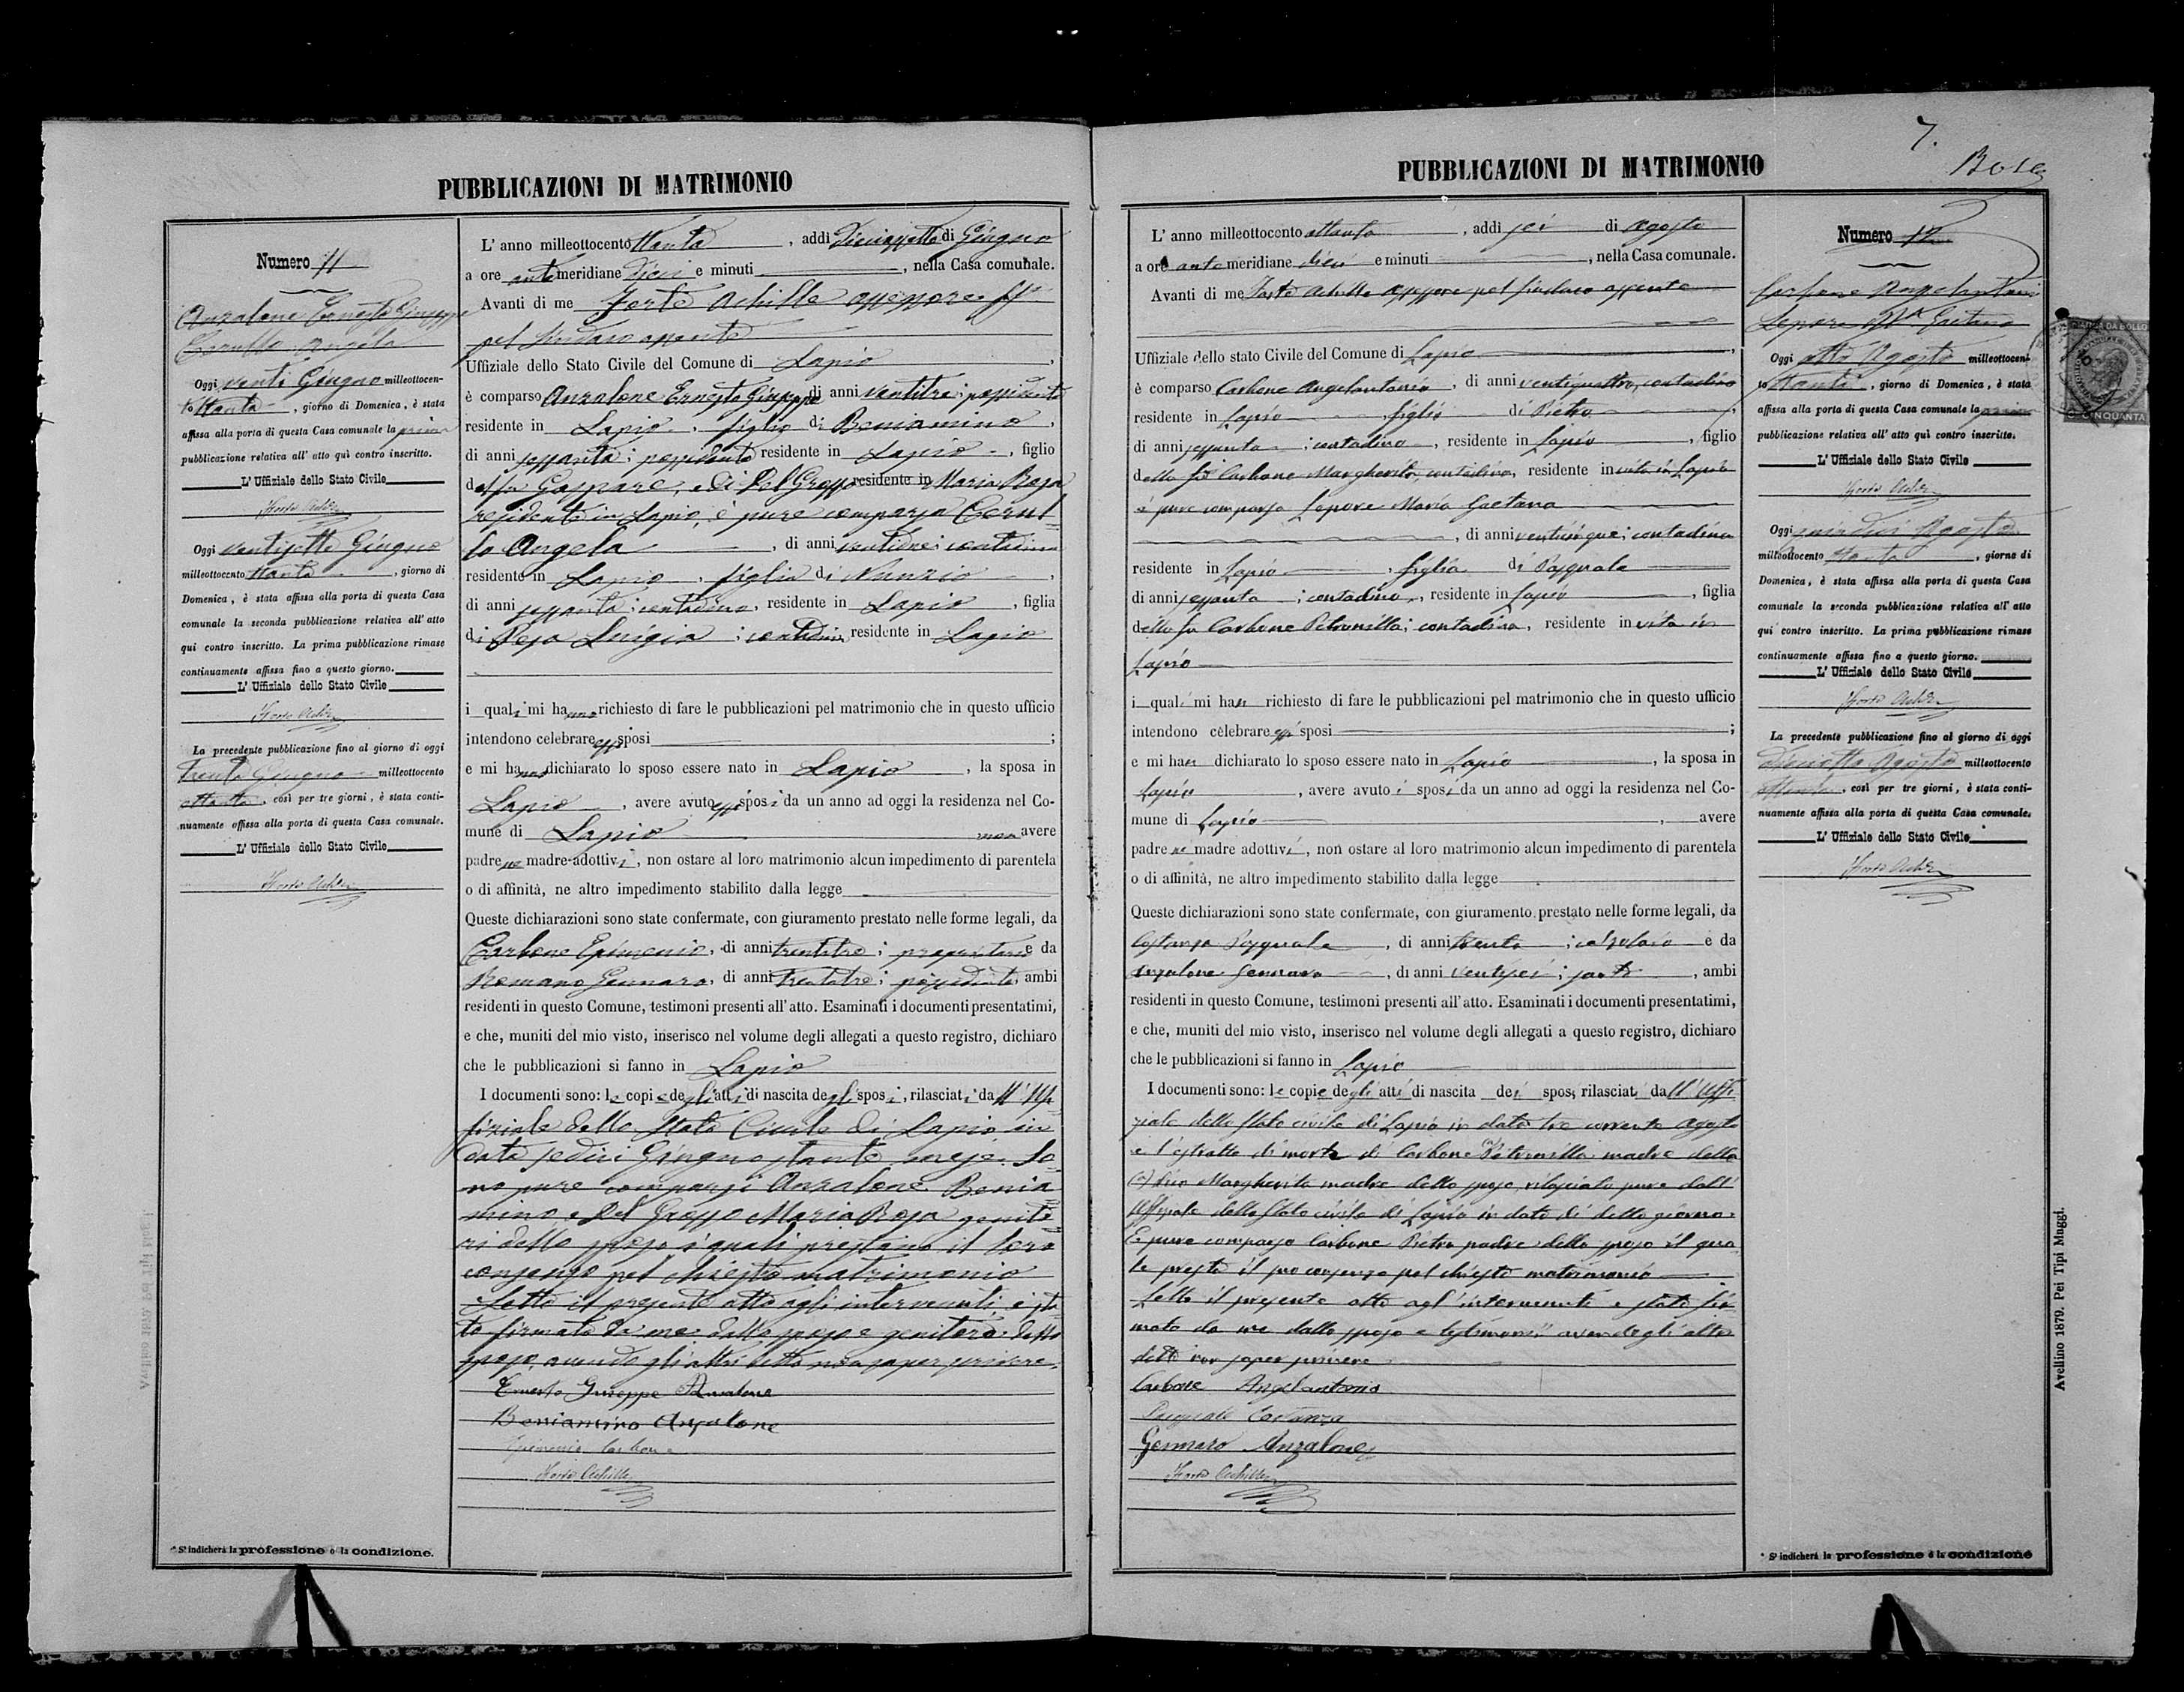 PUBBLICAZIONI DI MATRIMONIO
Numero 11
Anzalone Ernesto Giuseppe
Cerullo Angela
Oggi venti Giugno milleottocen-
to ttanta, giorno di Domenica, è stata
affissa alla porta di questa Casa comunale la prima
pubblicazione relativa all' atto quì contro inscritto.
L' Uffiziale dello Stato Civile
Forte Achille
Oggi ventisette Giugno
milleottocento ttanta, giorno di
Domenica, è stata affissa alla porta di questa Casa
comunale la seconda pubblicazione relativa all' atto
qui contro inscritto. La prima pubblicazione rimase
continuamente affissa fino a questo giorno.
L' Uffiziale dello Stato Civile
Forte Achille
La precedente pubblicazione fino al giorno di oggi
trenta Giugno milleottocento
ottanta, così per tre giorni, è stata conti-
nuamente affissa alla porta di questa Casa comunale.
L' Uffiziale dello Stato Civile
Forte Achille
* Si indicherà la professione o la condizione.
L' anno milleottocento ttanta, addì diciassette di Giugno
a ore antemeridiane dieci e minuti, nella Casa comunale.
Avanti di me Forte Achille assessore ff.
pel Sindaco assente
Uffiziale dello Stato Civile del Comune di Lapio,
è comparso Anzalone Ernesto Giuseppe di anni ventitre; possidente
residente in Lapio, figlio di Beniamino,
di anni sessanta; possidente residente in Lapio, figlio
del fu Gaspare, e di Del Grosso residente in Maria Rosa
residente in Lapio, è pure comparsa Cerul-
lo Angela, di anni ventidue; contadina
residente in Lapio, figlia di Nunzio,
di anni sessanta; contadino, residente in Lapio, figlia
di Pesa Luigia; contadina residente in Lapio
i quali mi hanno richiesto di fare le pubblicazioni pel matrimonio che in questo ufficio
intendono celebrare essi sposi;
e mi hanno dichiarato lo sposo essere nato in Lapio, la sposa in
Lapio, avere avuto essi sposi da un anno ad oggi la residenza nel Co-
mune di Lapio non avere
padre ne madre adottivi, non ostare al loro matrimonio alcun impedimento di parentela
o di affinità, ne altro impedimento stabilito dalla legge
Queste dichiarazioni sono state confermate, con giuramento prestato nelle forme legali, da
Carbone Epimenio, di anni trentatre; proprietario e da
Romano Gennaro, di anni trentatre; possidente, ambi
residenti in questo Comune, testimoni presenti all' atto. Esaminati i documenti presentatimi,
e che, muniti del mio visto, inserisco nel volume degli allegati a questo registro, dichiaro
che le pubblicazioni si fanno in Lapio
I documenti sono: le copie degli atti di nascita degli sposi, rilasciati dall' Uf-
fiziale dello Stato Civile di Lapio in
data sedici Giugno stante mese. So-
no pure comparsi Anzalone Benia-
mino e Del Grosso Maria Rosa genito-
ri dello sposo i quali prestano il loro
consenso pel chiesto matrimonio
Letto il presente atto agli intervenuti, è sta-
to firmato da me dallo sposo e genitore dello
sposo, avendo gli altri detto non saper scrivere.
Ernesto Giuseppe Anzalone
Beniamino Anzalone
Epimenio Carbone
Forte Achille
7.
PUBBLICAZIONI DI MATRIMONIO
L' anno milleottocento ottanta, addì sei di Agosto
a ore antemeridiane dieci e minuti, nella Casa comunale.
Avanti di me Forte Achille assessore pel Sindaco assente
Uffiziale dello stato Civile del Comune di Lapio,
è comparso Carbone Angelantonio, di anni ventiquattro, contadino
residente in Lapio, figlio di Pietro,
di anni sessanta; contadino, residente in Lapio, figlio
della fu Carbone Margherita, contadina, residente in vita in Lapio
è pure comparsa Lepore Maria Gaetana
, di anni venticinque; contadina
residente in Lapio, figlia di Pasquale
di anni sessanta; contadino, residente in Lapio, figlia
della fu Carbone Petronilla; contadina, residente in vita in
Lapio
i quali mi han richiesto di fare le pubblicazioni pel matrimonio che in questo ufficio
intendono celebrare essi sposi;
e mi han dichiarato lo sposo essere nato in Lapio, la sposa in
Lapio, avere avuto i sposi da un anno ad oggi la residenza nel Co-
mune di Lapio, avere
padre ne madre adottivi, non ostare al loro matrimonio alcun impedimento di parentela
o di affinità, ne altro impedimento stabilito dalla legge
Queste dichiarazioni sono state confermate, con giuramento prestato nelle forme legali, da
Costanza Pasquale, di anni trenta; calzolaio e da
Anzalone Gennaro, di anni ventisei; sarto, ambi
residenti in questo Comune, testimoni presenti all' atto. Esaminati i documenti presentatimi,
e che, muniti del mio visto, inserisco nel volume degli allegati a questo registro, dichiaro
che le pubblicazioni si fanno in Lapio
I documenti sono: le copie degli atti di nascita dei sposi rilasciati dall' Uffi-
ziale dello Stato civile di Lapio in data tre corrente Agosto
e l'estratto di morte di Carbone Petronilla madre della
Margherita madre dello sposo, rilasciato pure dall'
Uffiziale dello Stato civile di Lapio in data di detto giorno.
È pure comparso Carbone Pietro padre dello sposo il qua-
le presta il suo consenso pel chiesto matrimonio
Letto il presente atto agl' intervenuti è stato fir-
mato da me dallo sposo e testimonii avendo gli altri
detto non saper scrivere
Carbone Angelantonio
Pasquale Costanza
Gennaro Anzalone
Forte Achille
Numero 12
Carbone Angelantonio
Lepore Ma Gaetana
Oggi otto Agosto milleottocen-
to ttanta, giorno di Domenica, è stata
affissa alla porta di questa Casa comunale la prima
pubblicazione relativa all' atto quì contro inscritto.
L' Uffiziale dello Stato Civile
Forte Achille
Oggi quindici Agosto
milleottocento ttanta, giorno di
Domenica, è stata affissa alla porta di questa Casa
comunale la seconda pubblicazione relativa all' atto
qui contro inscritto. La prima pubblicazione rimase
continuamente affissa fino a questo giorno.
L' Uffiziale dello Stato Civile
Forte Achille
La precedente pubblicazione fino al giorno di oggi
diciotto Agosto milleottocento
ottanta, così per tre giorni, è stata conti-
nuamente affissa alla porta di questa Casa comunale.
L' Uffiziale dello Stato Civile
Forte Achille
* Si indicherà la professione o la condizione
Avellino 1879. Pei Tipi Maggi.